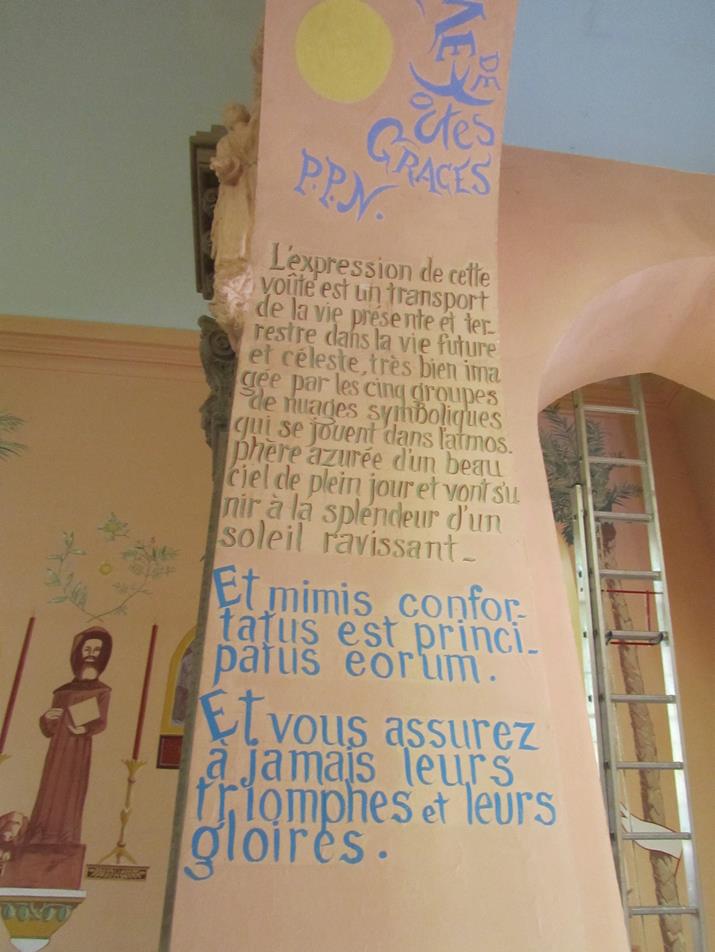 DE
Octes
GRACES
P.P.N.
L'expression de cette
voûte est un transport
de la vie présente et ter-
restre dans la vie future
et céleste, très bien ima
gée par les cinq groupes
de nuages symboliques
qui se jouent dans l'atmos-
phère azurée d'un beau
ciel de plein jour et vont s'u
nir à la splendeur d'un
soleil ravissant_
Et mimis confor-
tatus est princi-
patus eorum.
Et vous assurez
à jamais leurs
triomphes et leurs
gloires.